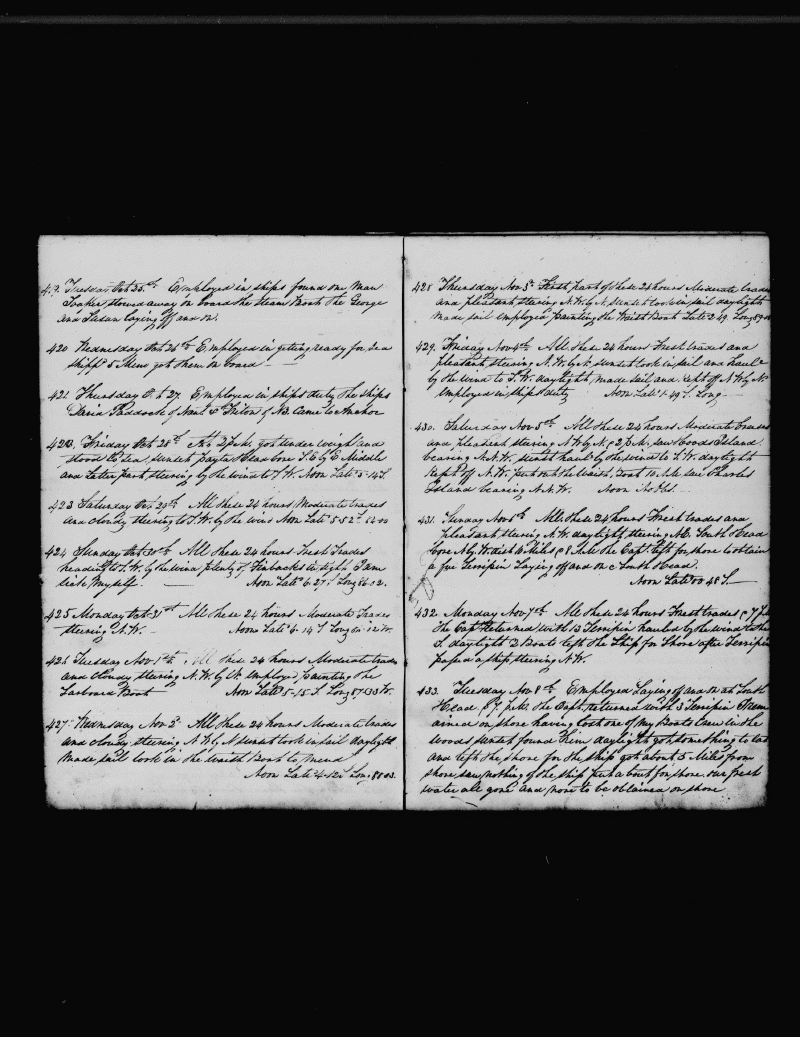 Tuesday Oct 25th Employed in ships found one man
Soaker stowed away on board the Steam Boat the George
and Susan laying off and on.
420 Wednesday Oct 26th Employed in getting ready for Sea
shipd 5 Mens got them on board
421 Thursday Oct 27. Employed in ships duty the ships
Paddock of Nant & Triton of NB. Came to Anchor
Friday Oct 28th At 2 P.M. got under weigh and
stood to Sea, sunset Payta Head bore S.E by E Middle
and Latter part steering by the wind to S W. Noon Latd 5.14 S.
423 Saturday Oct 29th All these 24 hours Moderate trades
and cloudy steering to S.W. by the wind Noon Latd 5-52
424 Sunday Oct 30th All these 24 hours Fresh Trades
heading to S.W. by the wind plenty of Finbacks in sight I am
sick, Myself. Noon Latd 6.27 S Long 86.02.
425 Monday Oct 31st All these 24 hours Moderate Trades
steering N.W. Noon Latd 6.14 S Long
426 Tuesday Nov 1st. All these 24 hours Moderate trades
and cloudy steering N.W. by N. employed, Painting the
Larboard Boat Noon Latd 5-15 S. Long 87-33 W.
427. Wednesday Nov 2d All these 24 hours Moderate trades
and cloudy steering N.W by N sunset took in sail daylight
Made sail took in the Waist Boat to Mend
Noon Latd Long 88
428 Thursday Nov 3d First part of these 24 hours Moderate trades
and pleasant, steering N.W by N. sunset took in sail daylight
made sail employed painting the Waist Boat Latd 2.49 Long 89
429. Friday Nov 4th. All these 24 hours Fresh trades and
pleasant, steering N.W. by N. sunset took in sail and hauld
by the wind to S.W. daylight, made sail and kept off N W by N
employed in ships duty Noon Latd 1.49 S. Long
430. Saturday Nov 5th. All these 24 hours Moderate trades
and pleasant steering N.W by N. 2 P.M., saw Hoods Island
bearing N.N.W. sunset hauld by the wind to S.W. daylight
Kept off N.W. put out the Waist Boat 10 AM saw Charles
Island bearing N.N.W. Noon No Obs.
431. Sunday Nov 6th. All these 24 hours Fresh trades and
pleasant, steering N.W. daylight, steering NE. South Head
bore N by W. dist 6 Miles 8 A.M. the Capt left for shore to obtain
a few Terrapin Laying off and on South Head.
Noon Latd 00 48 S.
432. Monday Nov 7th. All these 24 hours Fresh trades 7 P.M.
the Capt Returned with 13 Terrapin hauled by the wind to the
S. daylight 2 Boats left the Ship for Shore after Terrapin
passed a ship steering N.W.
433. Tuesday Nov 8th Employed Laying off and on at South
Head 7 P.M. the Capt. returned with 3 Terrapin I rem-
ained on shore having lost one of my Boats Crew in the
woods sunset found him daylight got something to eat
and left the shore for the ship got about 5 Miles from
shore saw nothing of the ship put about for shore. our fresh
water all gone and none to be obtained on shore